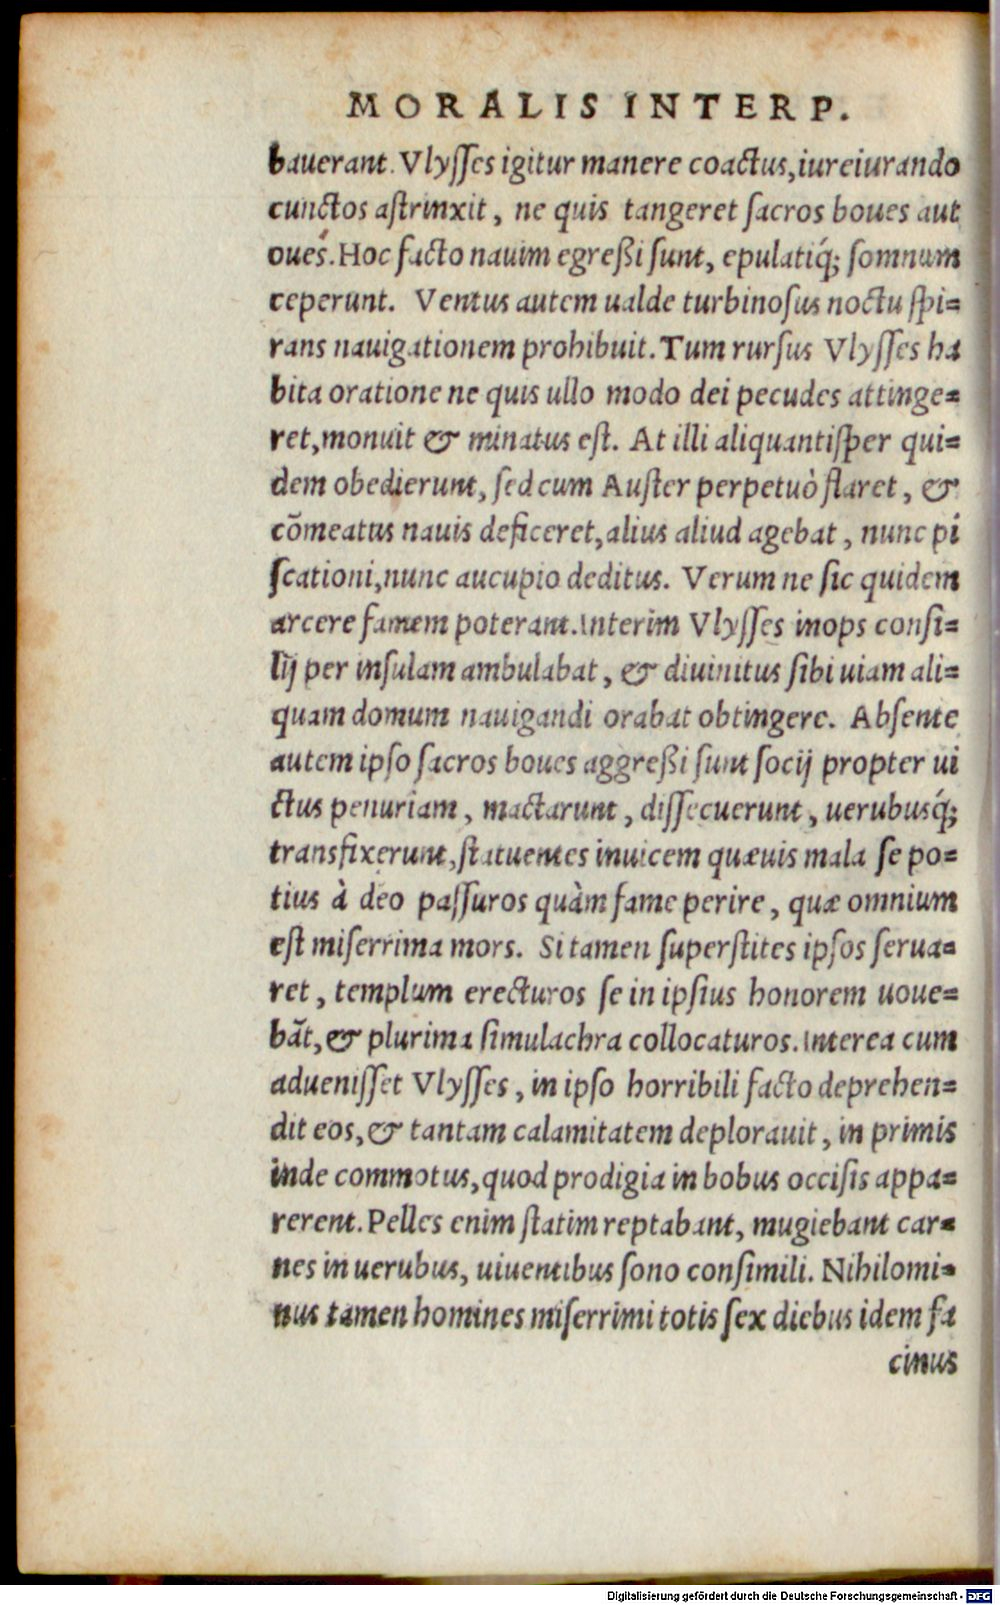 MORALIS INTERP.
bauerant. Vlyſſes igitur manere coactus, iureiurando
cunctos aſtrinxit, ne quis tangeret ſacros boues aut
oues. Hoc facto nauim egreßi ſunt, epulatiq́; ſomnum
ceperunt. Ventus autem ualde turbinoſus noctu ſpi=
rans nauigationem prohibuit. Tum rurſus Vlyſſes ha
bita oratione ne quis ullo modo dei pecudes attinge=
ret, monuit & minatus eſt. At illi aliquantiſper qui=
dem obedierunt, ſed cum Auſter perpetuò flaret, &
cõmeatus nauis deficeret, alius aliud agebat, nunc pi
ſcationi, nunc aucupio deditus. Verum ne ſic quidem
arcere famem poterant. Interim Vlyſſes inops conſi=
lij per inſulam ambulabat, & diuinitus ſibi uiam ali=
quam domum nauigandi orabat obtingere. Abſente
autem ipſo ſacros boues aggreßi ſunt ſocij propter ui
ctus penuriam, mactarunt, diſſecuerunt, uerubusq́;
transfixerunt, ſtatuentes inuicem quæuis mala ſe po=
tius à deo paſſuros quàm fame perire, quæ omnium
eſt miſerrima mors. Si tamen ſuperſtites ipſos ſerua=
ret, templum erecturos ſe in ipſius honorem uoue=
bãt, & plurima ſimulachra collocaturos. Interea cum
adueniſſet Vlyſſes, in ipſo horribili facto deprehen=
dit eos, & tantam calamitatem deplorauit, in primis
inde commotus, quod prodigia in bobus occiſis appa=
rerent. Pelles enim ſtatim reptabant, mugiebant car=
nes in uerubus, uiuentibus ſono conſimili. Nihilomi=
nus tamen homines miſerrimi totis ſex diebus idem fa
cinus
Digitalisierung gefördert durch die Deutsche Forschungsgemeinschaft - DFG